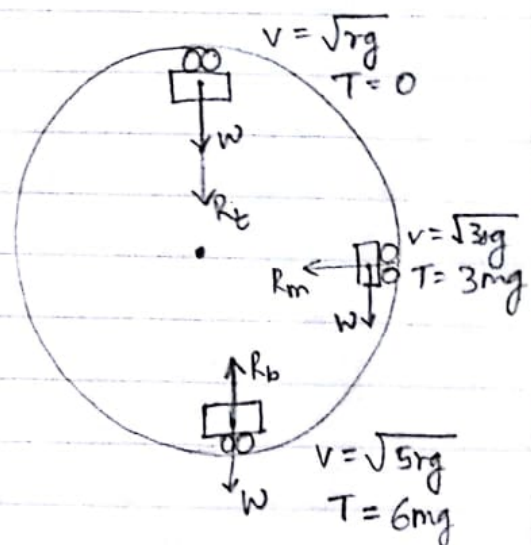 v = √rg
T = 0
W
R_t
v = √3rg
R_m
T = 3mg
W
R_b
v = √5rg
W
T = 6mg